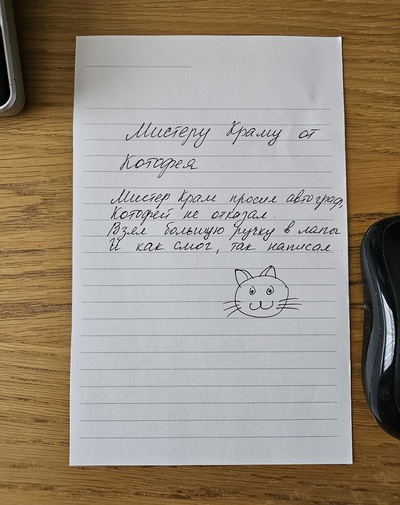 Мистеру Краму от
Котофея
Мистер Крам просил автограф,
Котофей не отказал.
Взял большую ручку в лапы
И как смог, так написал.